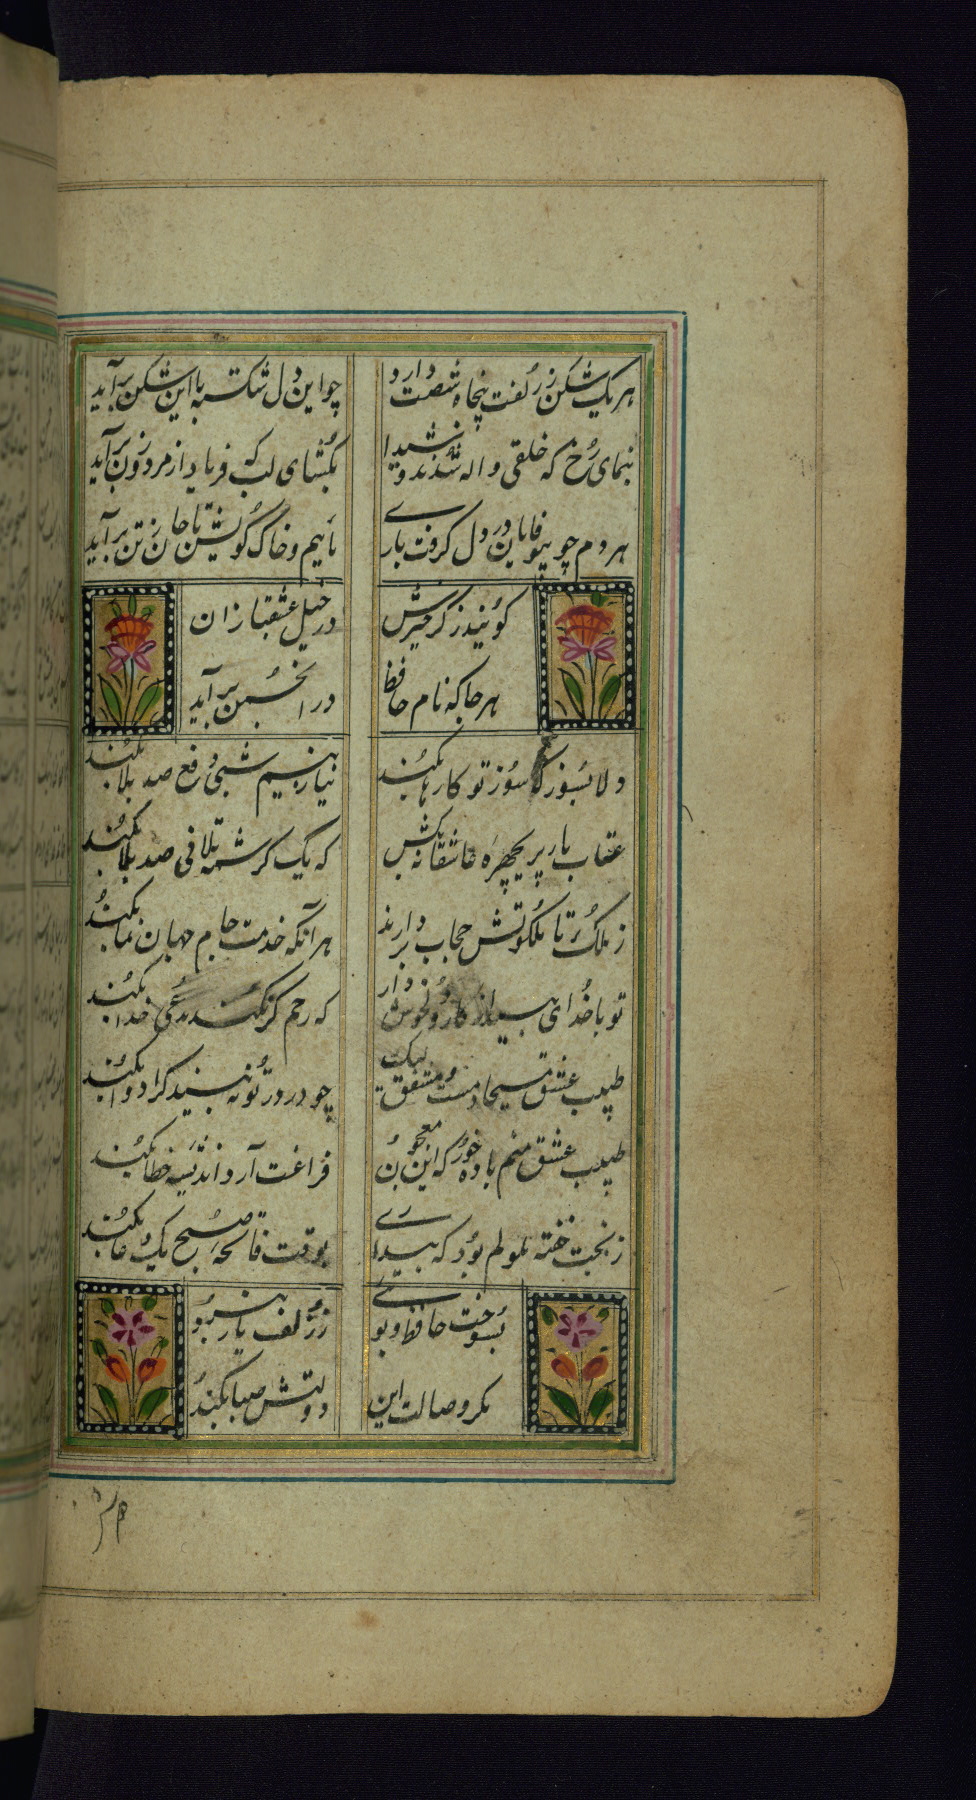 هر یک شکن ز زلفت پنجاه شصت دارد چو این دل شکسته با این شکن برآید
بنمای رخ که خلقی واله شدند و شیدا بگشای لب که فریاد از مرد و زن برآید
هر دم چو بیوفایان دل گرفت یاری مائیم و خاک کویش تا جان ز تن برآید
گویند ذکر خیرش در خیل عشقبازان
هر جا که نام حافظ در انجمن برآید
دلا بسوز که سوز تو کارها بکند نیاز نیم شبی دفع صد بلا بکند
عتاب یار پریچهره عاشقانه بکش که یک کرشمه تلافی صد بلا بکند
ز ملک تا ملکوتش حجاب بردارند هر آنکه خدمت جام جهان نما بکند
تو با خدای بینداز کار و دلخوش دار که رحم گر نکند مدعی خدا بکند
طبیب عشق مسیحا دمست و مشفق لیک چو درد در تو نبیند کرا دوا بکند
طبیب عشق منم باده خور که این معجون فراغت آرد و اندیشه خطا بکند
ز بخت خفته ملولم بود که بیداری بوقت فاتحه صبح یک دعا بکند
بسوخت حافظ و بوی ز زلف یار نبرد
مگر وصالت این دولتش صبا بکند